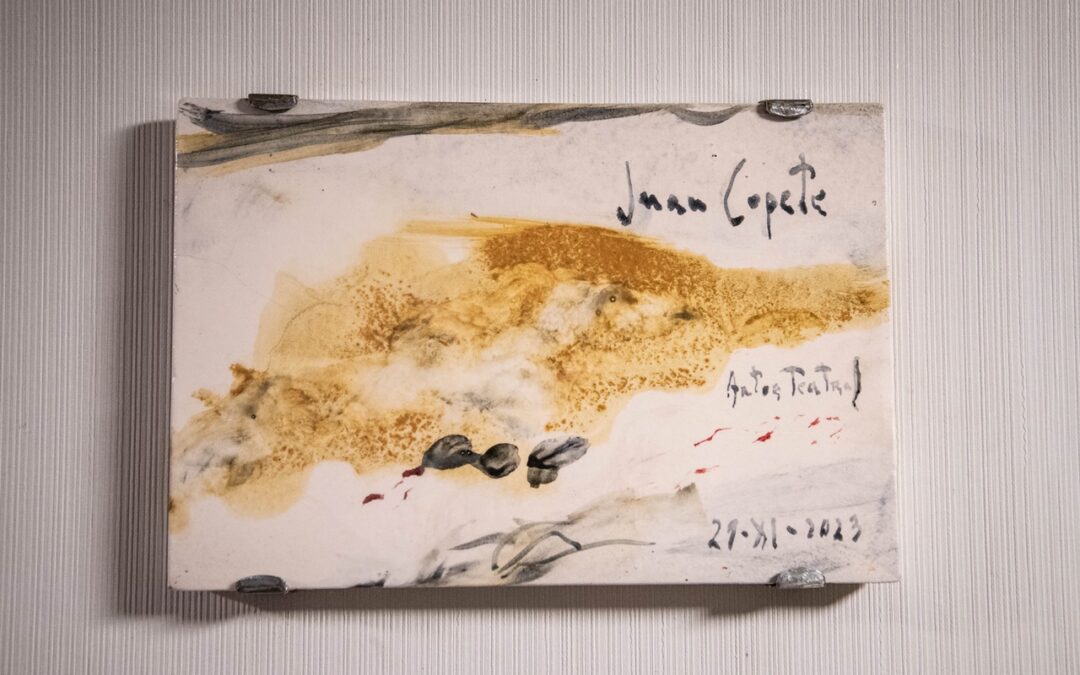 Juan Copete
Autor Teatral
29-XI-2023